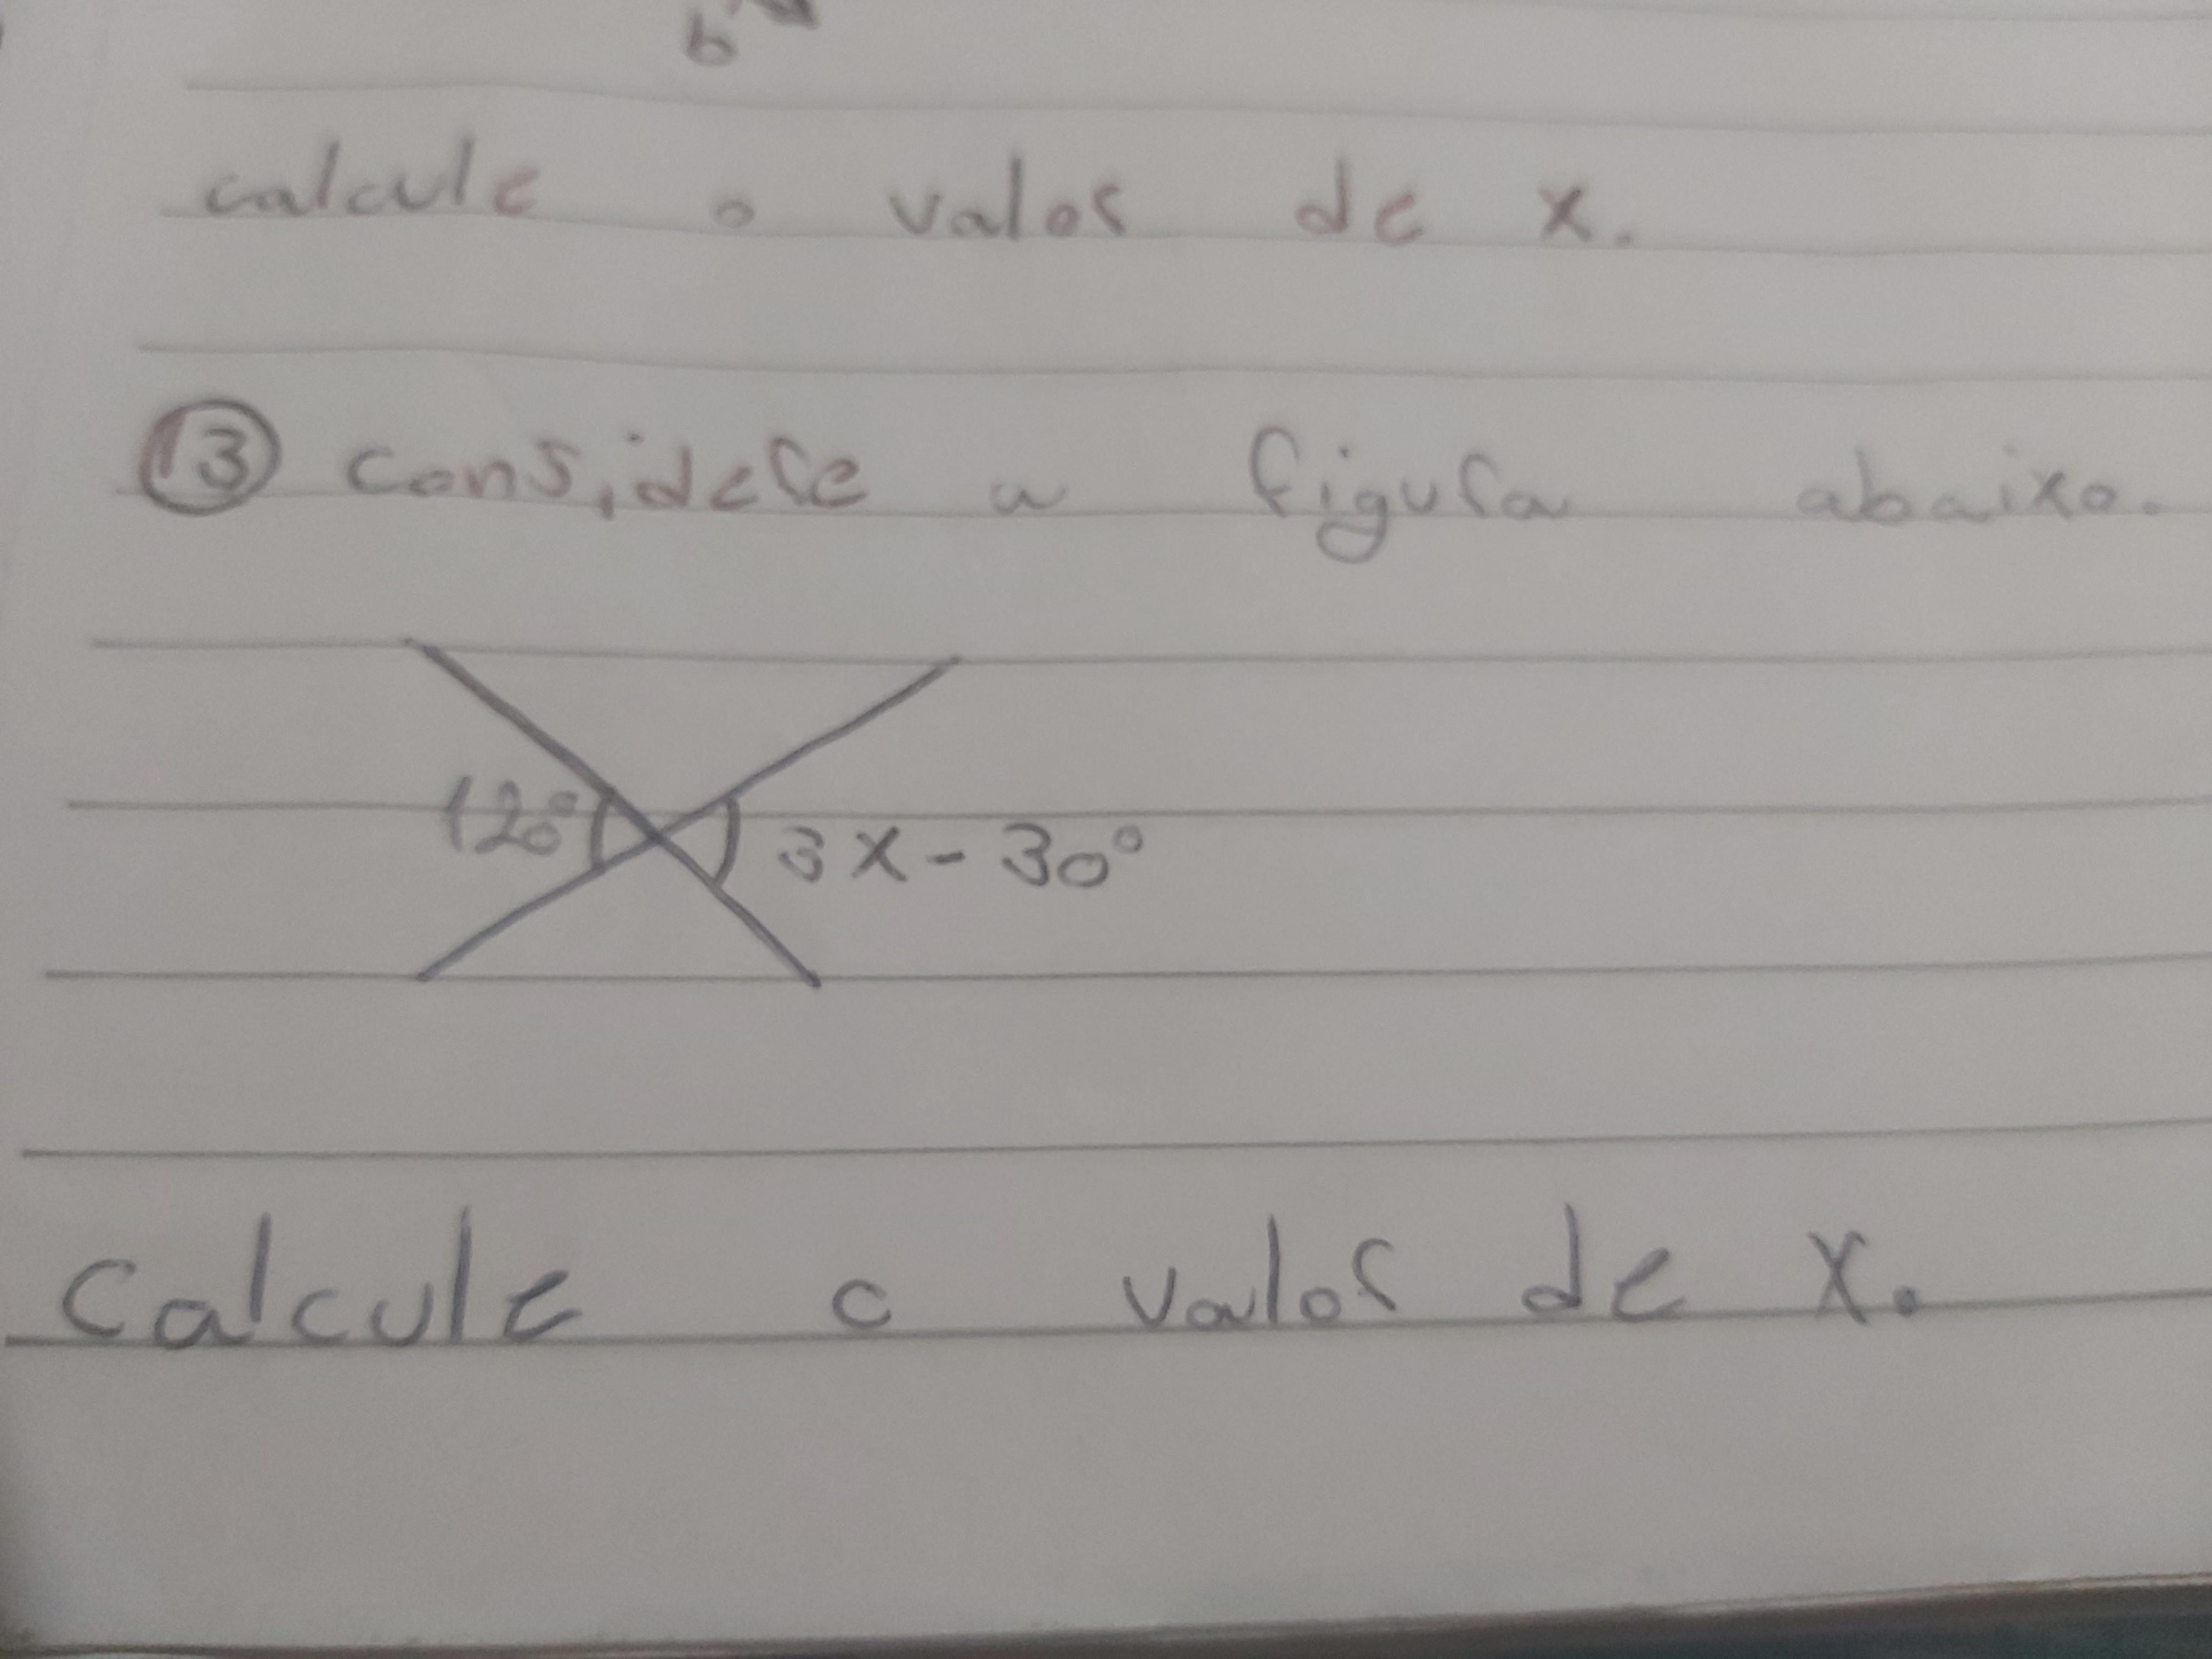 b
calcule o valor de x.
13 considere a figura abaixo.
120° 3x - 30°
Calcule o valor de x.